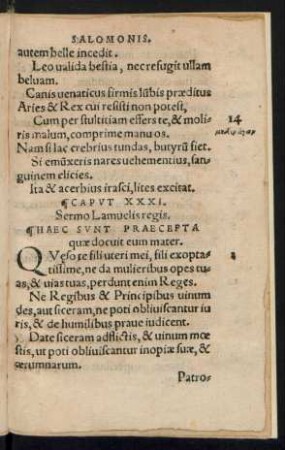 SALOMONIS.
autem belle incedit.
Leo ualida bestia, nec refugit ullam
beluam.
Canis uenaticus firmis lūbis præditus
Aries & Rex cui resisti non potest,
Cum per stultitiam effers te, & moli-
ris malum, comprime manu os.
14
Nam si lac crebrius tundas, butyrū fiet.
Si emūxeris nares uehementius, san-
guinem elicies.
Ita & acerbius irasci, lites excitat.
¶CAPVT XXXI.
Sermo Lamuelis regis.
¶HAEC SVNT PRAECEPTA
quæ docuit eum mater.
QVęso te fili uteri mei, fili exopta-
tissime, ne da mulieribus opes tu-
as, & uias tuas, perdunt enim Reges.
Ne Regibus & Principibus uinum
des, aut siceram, ne poti obliuiscantur iu
ris, & de humilibus praue iudicent.
Date siceram adflictis, & uinum mœ
stis, ut poti obliuiscantur inopiæ suæ, &
ærumnarum.
Patro-